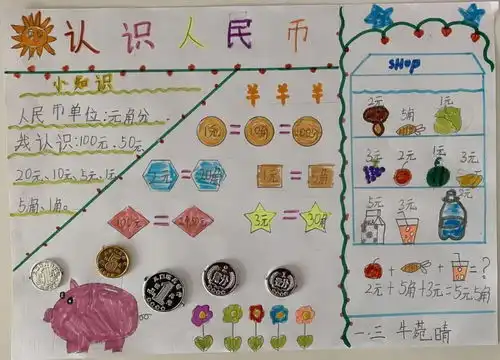 认识人民币
小知识
人民币单位:元角分
我认识:100元、50元、
20元、10元、5元、1元、
5角、1角。
羊 羊 羊
1元=10角=100分
1元=
3元=30角
SHOP
2元 5角 1元
3元 2元 1元 3元
5元 3元 2元
+ + =?
2元+5角+3元=5元5角
一.三 牛苑晴